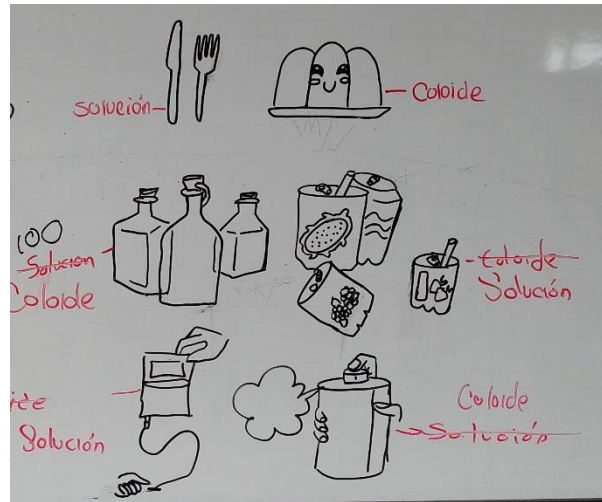 solución
Coloide
100
Solución
Coloide
Coloide
Solución
Solución
Coloide
Solución